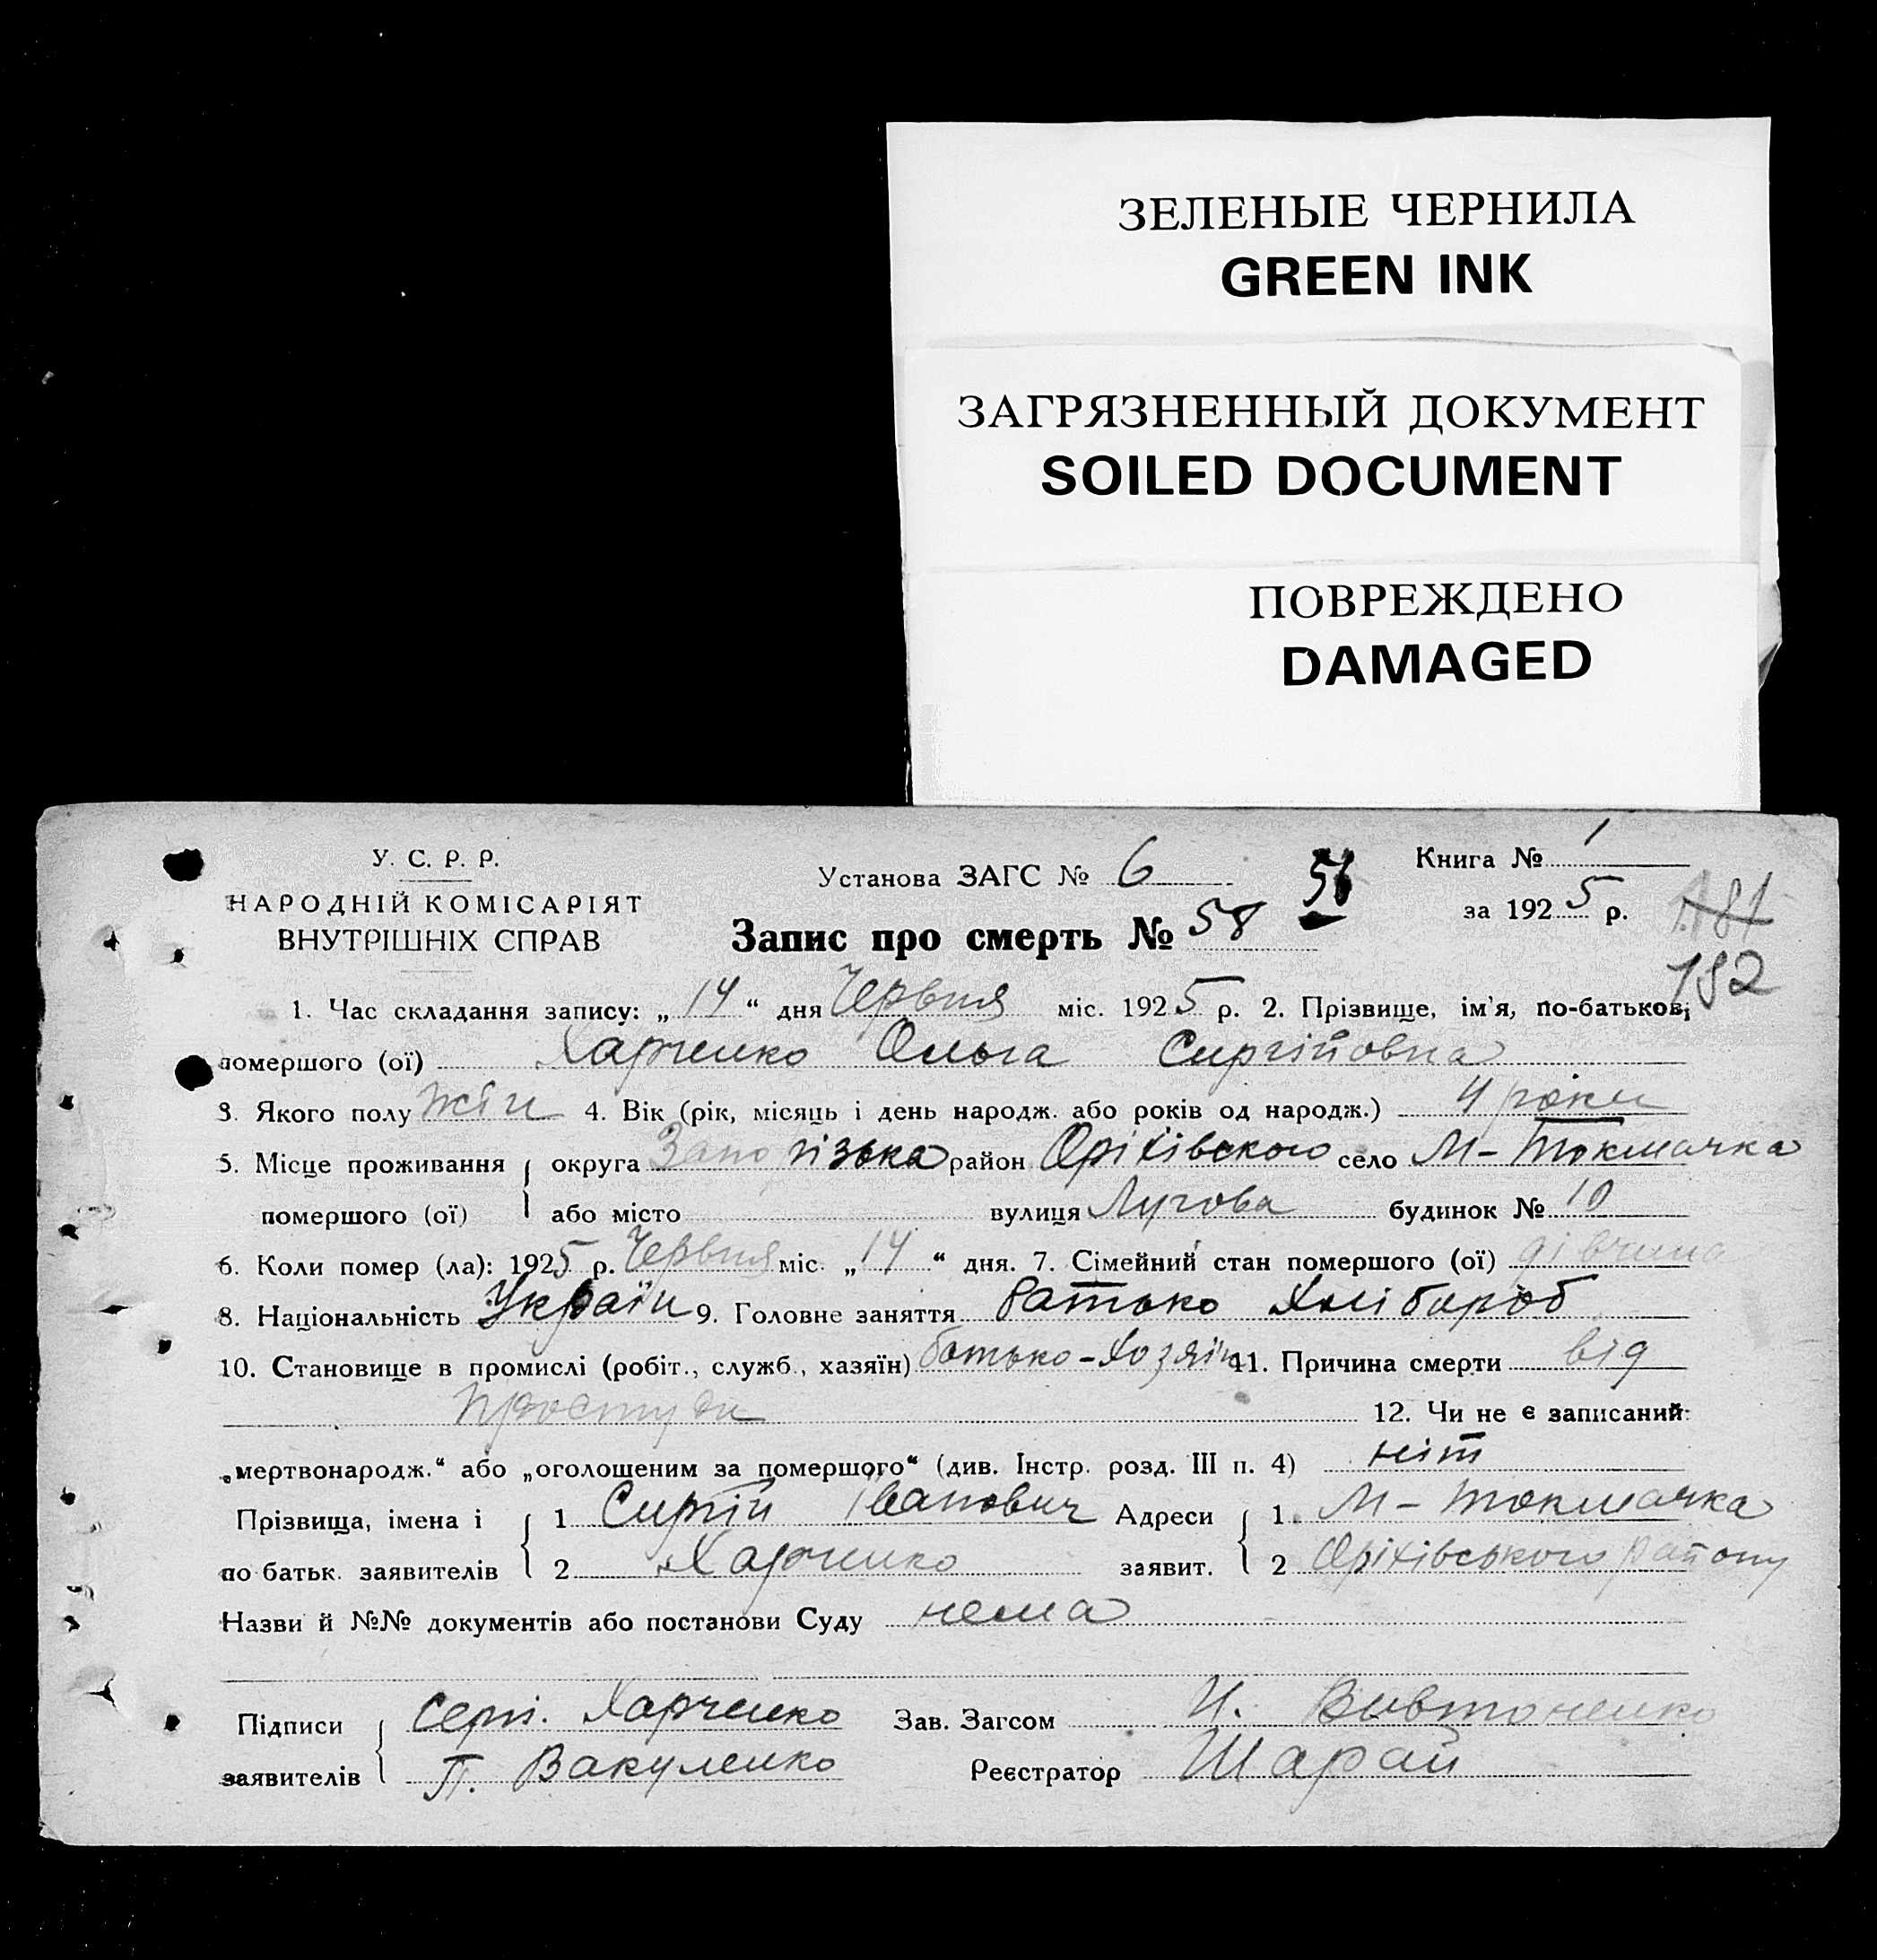 ЗЕЛЕНЫЕ ЧЕРНИЛА
GREEN INK
ЗАГРЯЗНЕННЫЙ ДОКУМЕНТ
SOILED DOCUMENT
ПОВРЕЖДЕНО
DAMAGED
У. С. Р. Р.
НАРОДНІЙ КОМІСАРІЯТ
ВНУТРІШНІХ СПРАВ
Установа ЗАГС № 6
Книга № 1
за 1925 р.
181
182
Запис про смерть № 58
1. Час складання запису: „14“ дня Червня міс. 1925 р. 2. Прізвище, ім'я, по-батькові
помершого (ої) Харченко Ольга Сиргійовна
3. Якого полу жін 4. Вік (рік, місяць і день народж. або років од народж.) 4 роки
5. Місце проживання округа Запорізька район Оріхівского село М-Токмачка
помершого (ої) або місто вулиця Лугова будинок № 10
6. Коли помер (ла): 1925 р. Червня міс. „14“ дня. 7. Сімейний стан помершого (ої) дівчина
8. Національність Україн 9. Головне заняття батько Хлібороб
10. Становище в промислі (робіт., служб., хазяїн) батько-Хозяїн 11. Причина смерти від
простуди 12. Чи не є записаний:
„мертвонародж.“ або „оголошеним за помершого“ (див. Інстр. розд. III п. 4) ніт
Прізвища, імена і 1 Сиргій Іванович Адреси 1. М-Токмачка
по батьк. заявителів 2 Харченко заявит. 2 Оріхівського району
Назви й №№ документів або постанови Суду нема
Підписи Сергі. Харченко Зав. Загсом И. Вивтоненко
заявителів П. Вакуленко Реєстратор Шарай